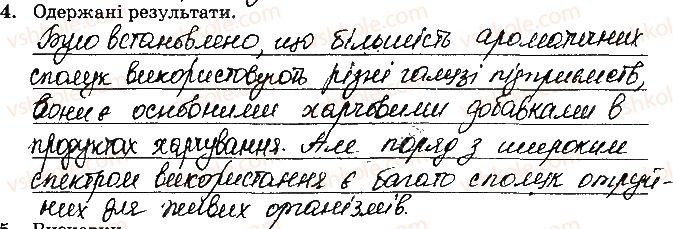 4. Одержані результати.
Було встановлено, що більшість ароматичних
сполук використовують різні галузі підприємств,
вони є основними харчовими добавками в
продуктах харчування. Але поряд з широким
спектром використання є багато сполук отруй-
них для живих організмів.